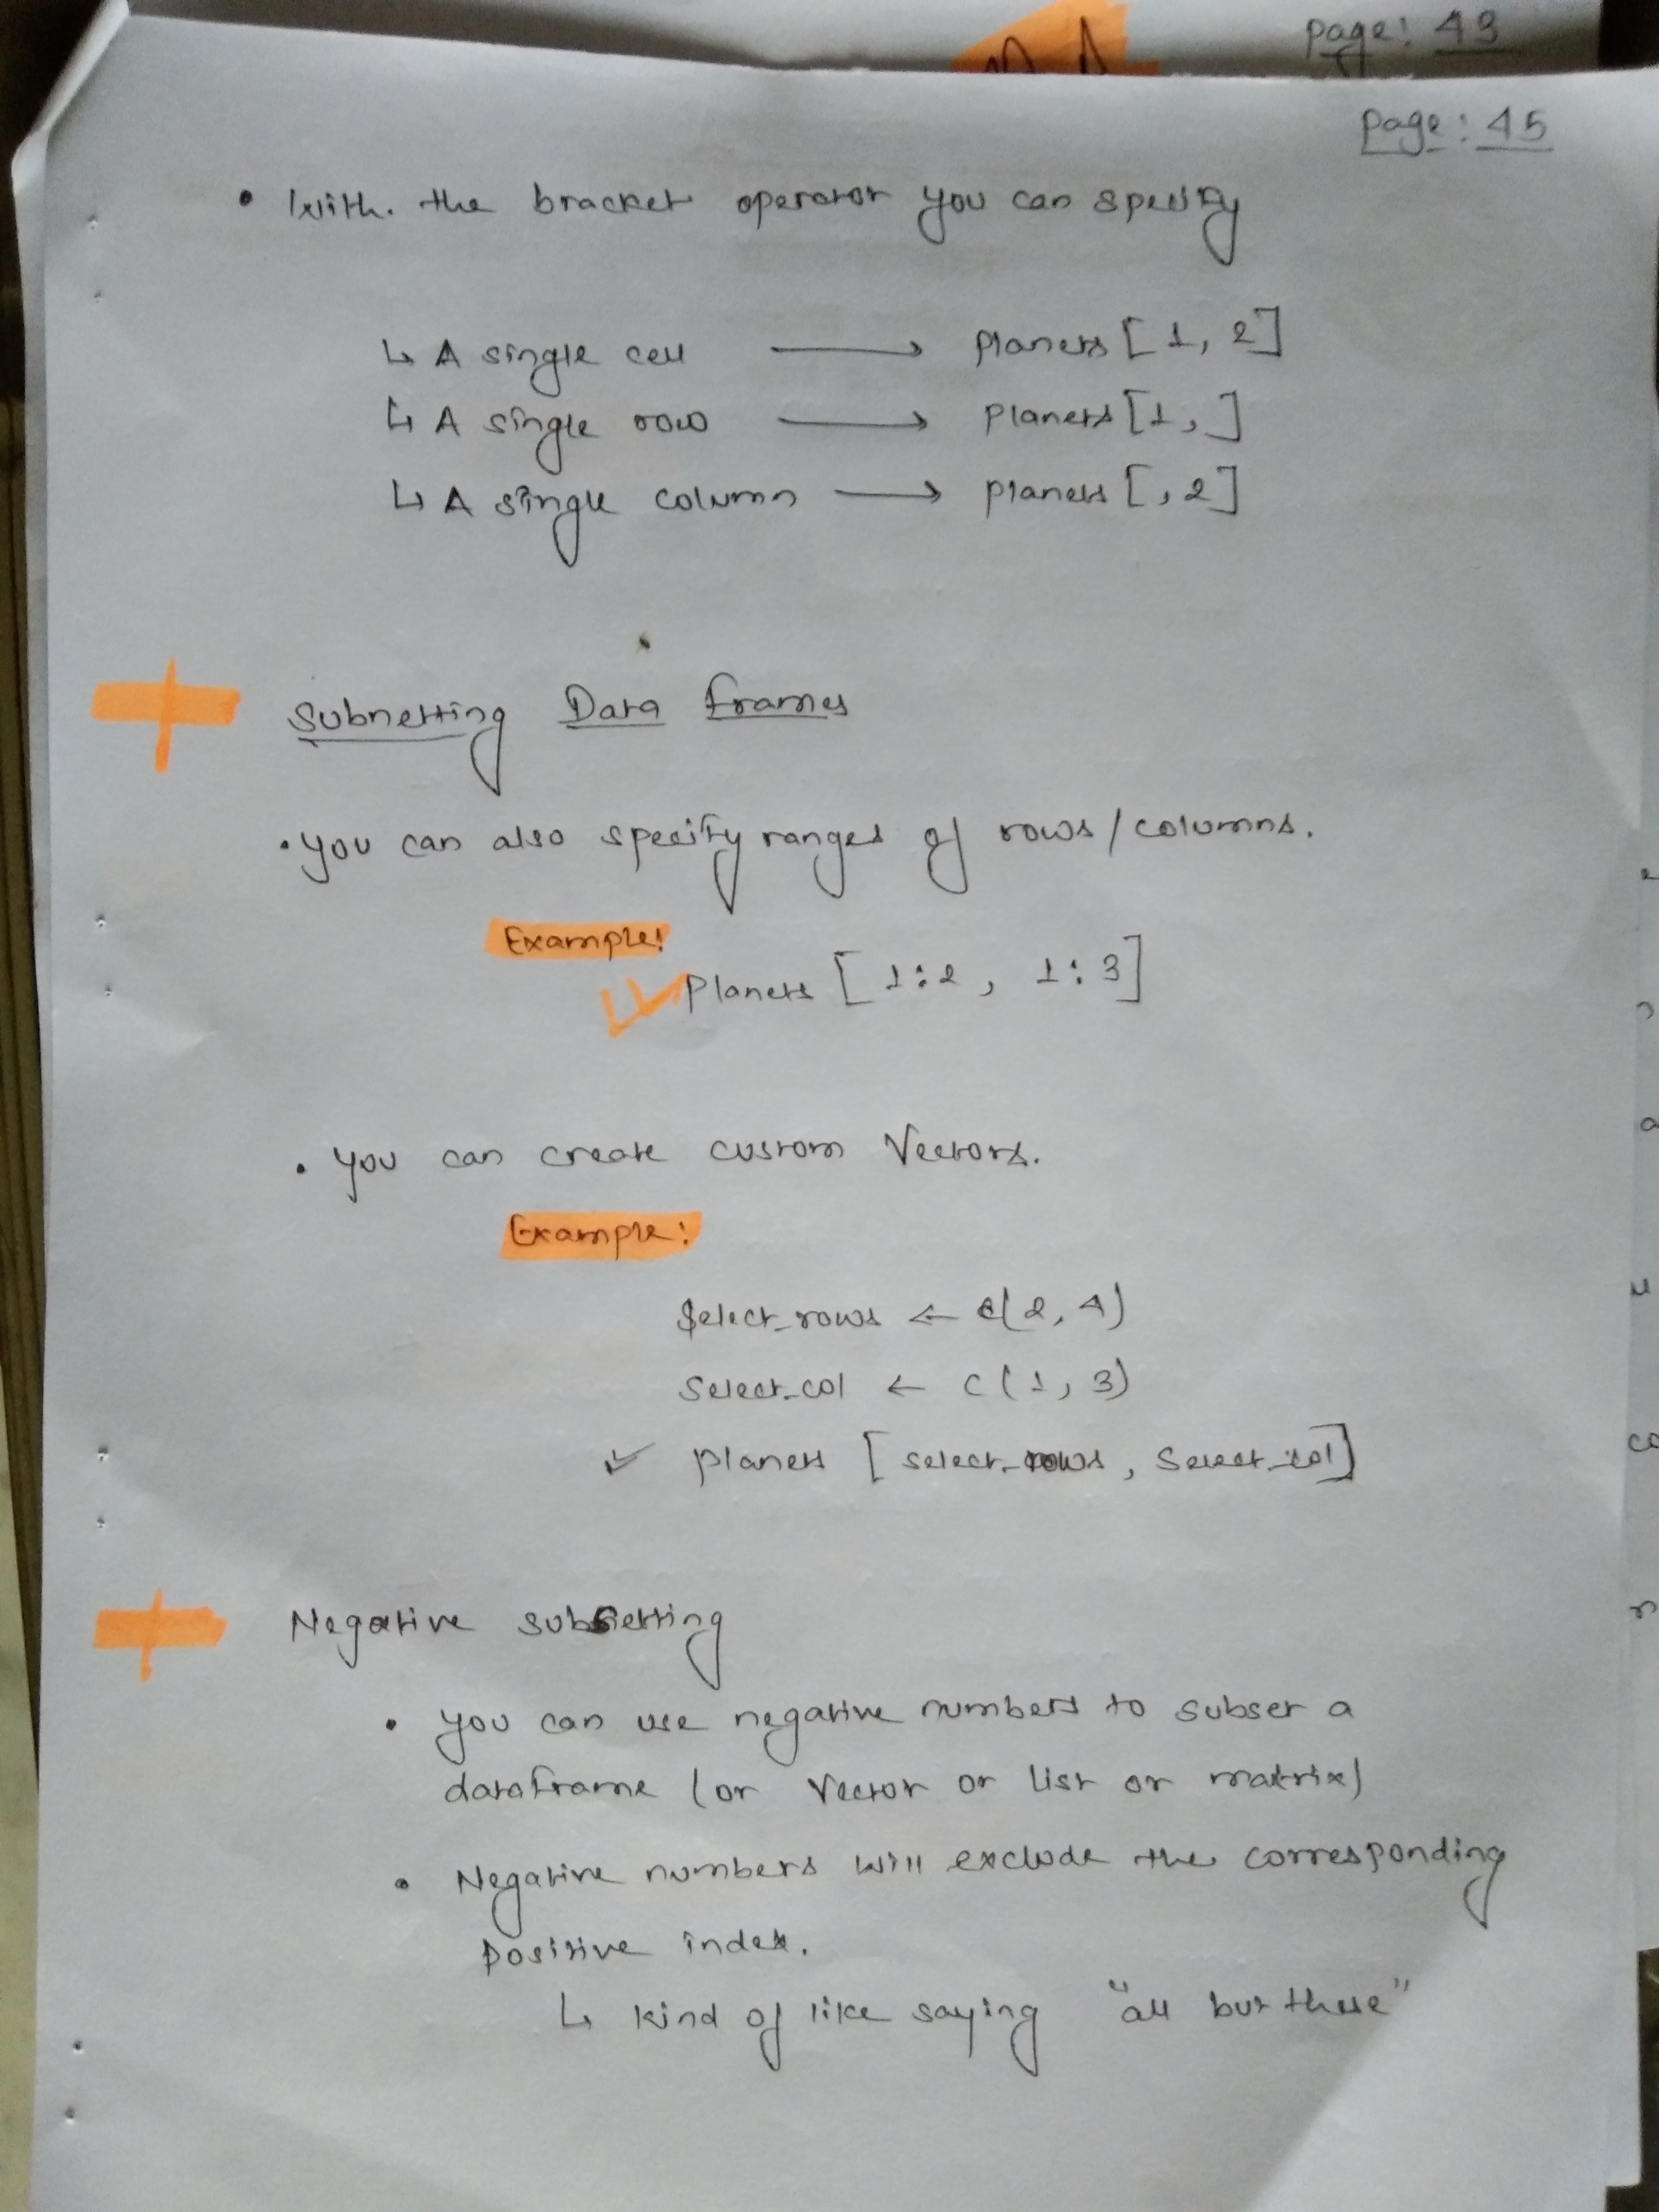 page: 43
page: 45
• With. the bracket operator you can specify
↳ A single cell ⟶ planets [1, 2]
↳ A single row ⟶ planets [1, ]
↳ A single column ⟶ planets [, 2]
Subnetting Data Frames
• you can also specify ranges of rows/columns.
Example:
planets [1:2, 1:3]
• you can create custom Vectors.
Example:
Select_rows ← c(2, 4)
Select_col ← c(1, 3)
planets [select_rows, Select_col]
Negative subsetting
• you can use negative numbers to subset a
dataframe (or Vector or list or matrix)
• Negative numbers will exclude the corresponding
positive index.
↳ kind of like saying "all but these"